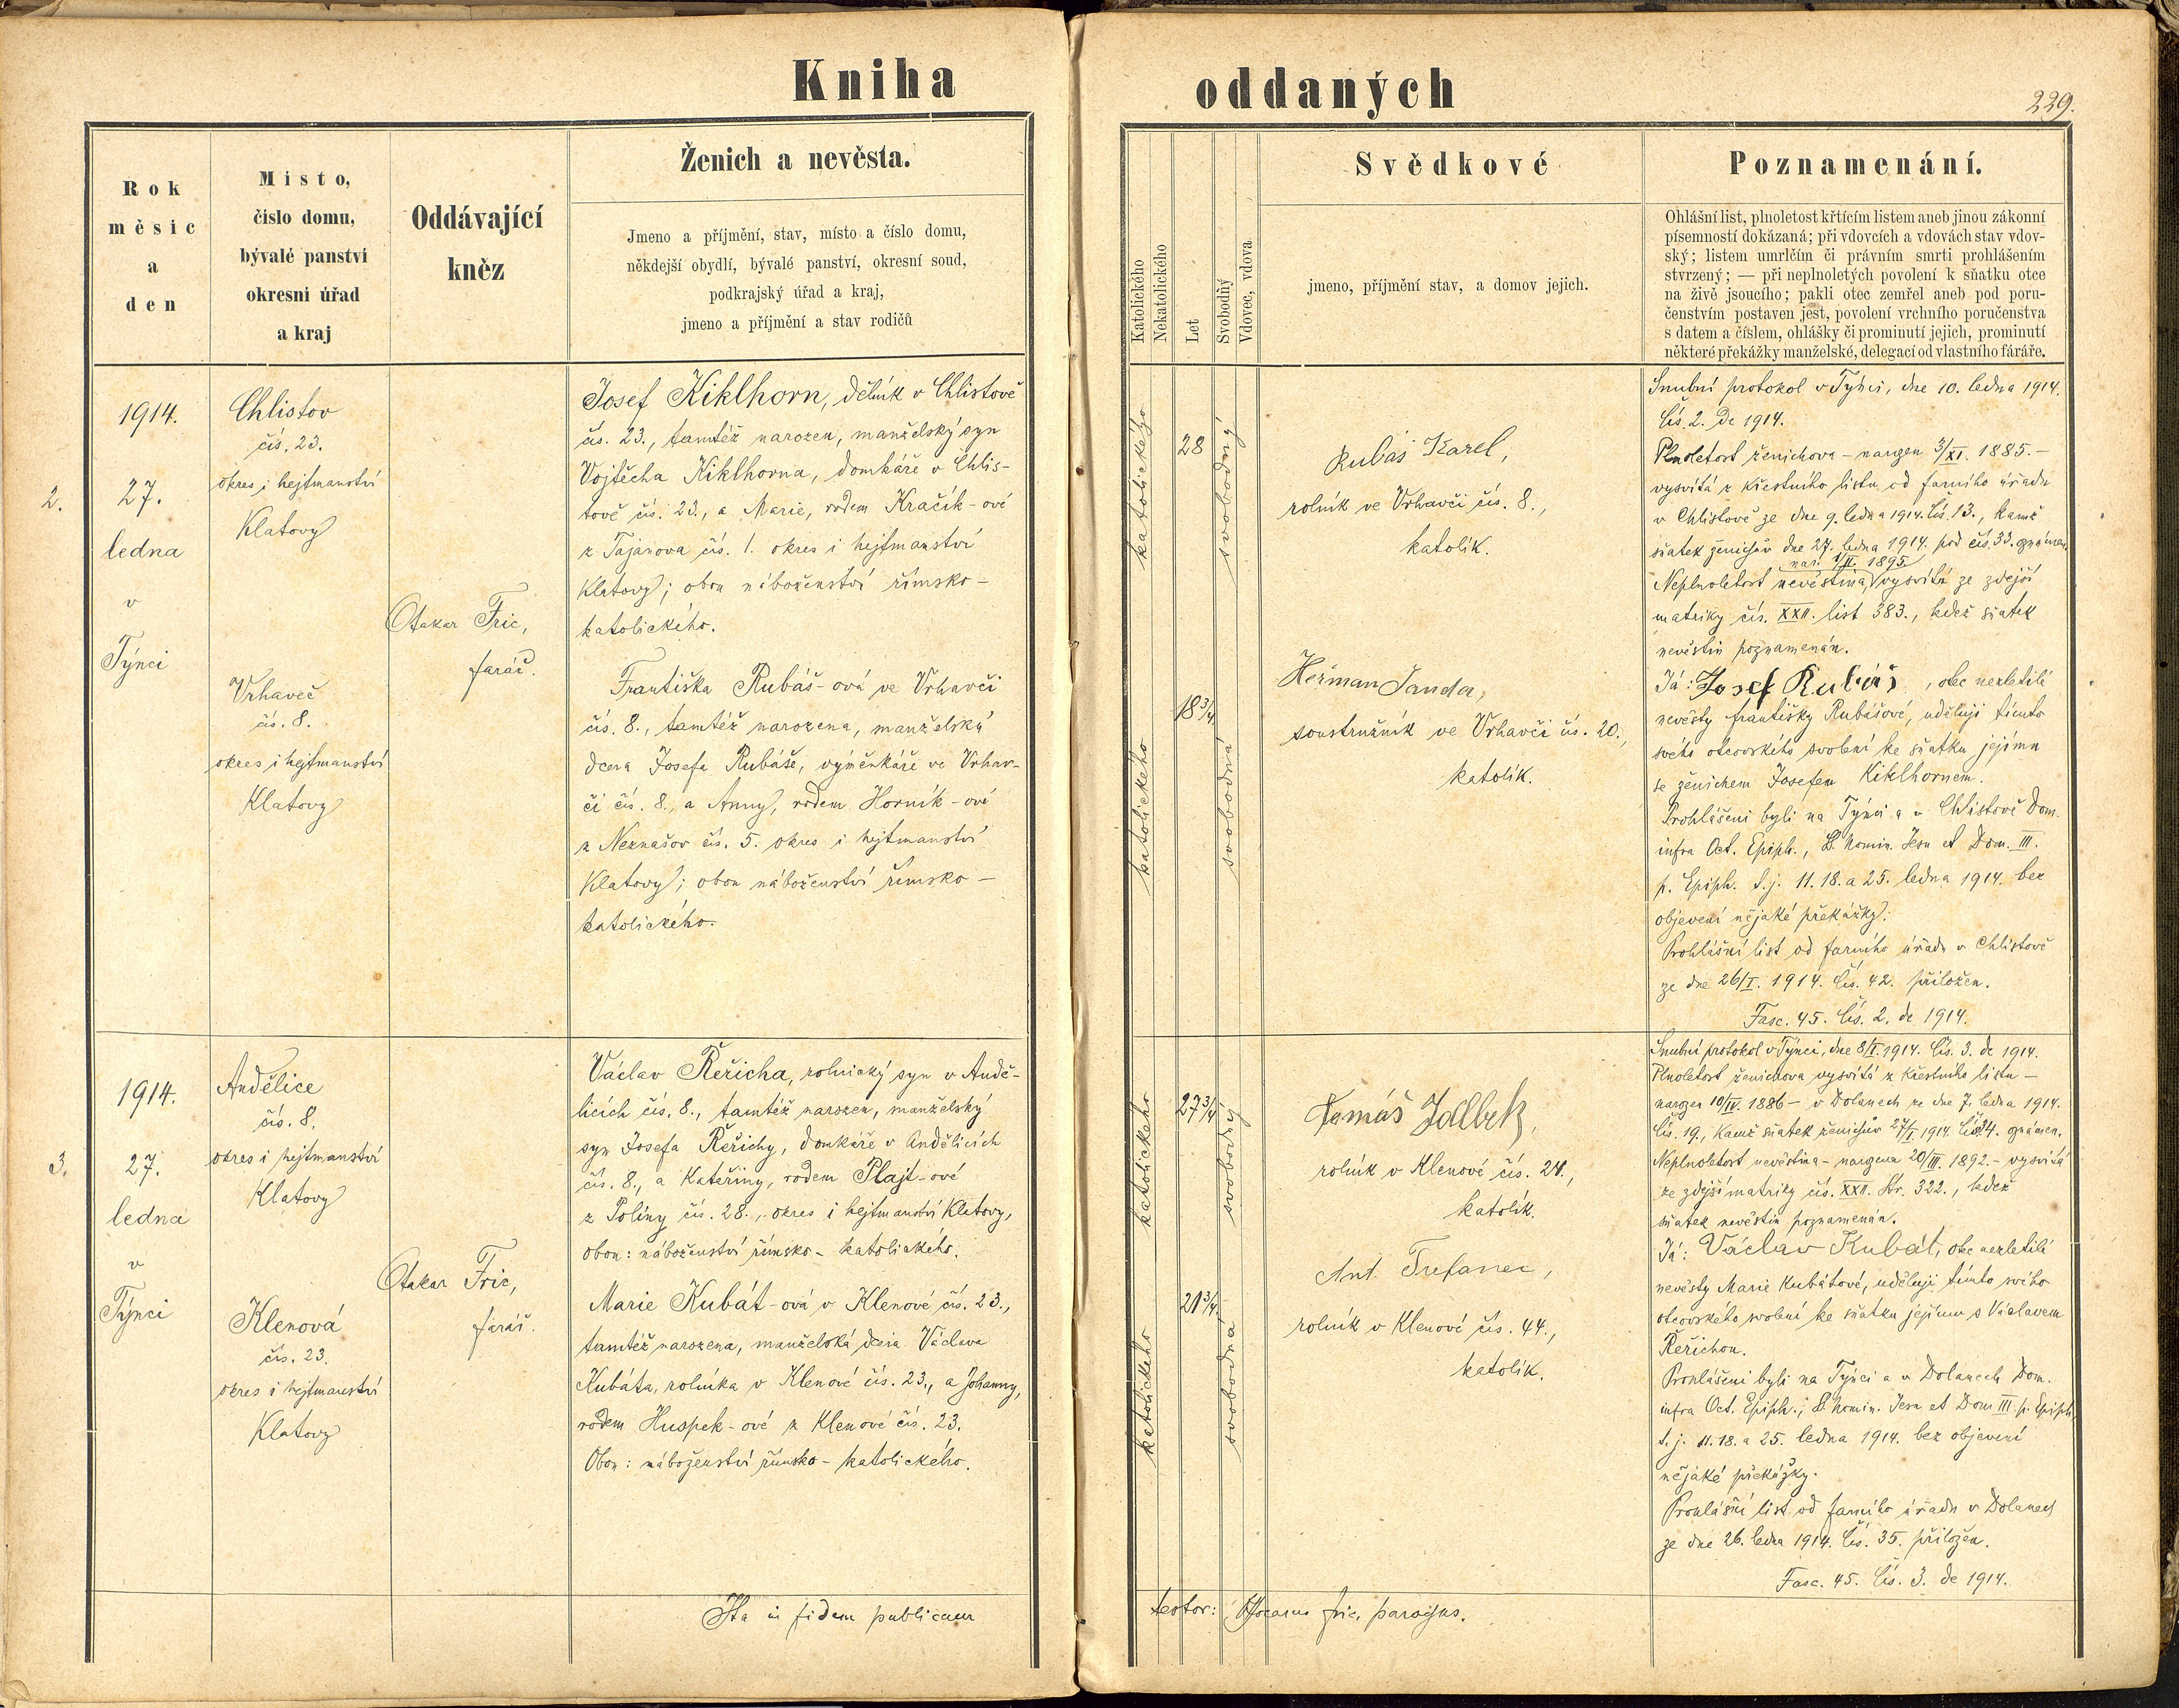 Kniha oddaných
229.
Rok
měsíc
a
den
Místo,
číslo domu,
bývalé panství
okresní úřad
a kraj
Oddávající
kněz
Ženich a nevěsta.
Jmeno a příjmění, stav, místo a číslo domu,
někdejší obydlí, bývalé panství, okresní soud,
podkrajský úřad a kraj,
jmeno a příjmění a stav rodičů
Katolického
Nekatolického
Let
Svobodňý
Vdovec, vdova
Svědkové
jmeno, příjmění stav, a domov jejich.
Poznamenání.
Ohlášní list, plnoletost křtícím listem aneb jinou zákonní
písemností dokázaná; při vdovcích a vdovách stav vdov-
ský; listem umrlčím či právním smrti prohlášením
stvrzený; — při neplnoletých povolení k sňatku otce
na živě jsoucího; pakli otec zemřel aneb pod poru-
čenstvím postaven jest, povolení vrchního poručenstva
s datem a číslem, ohlášky či prominutí jejich, prominutí
některé překážky manželské, delegací od vlastního fáráře.
2.
1914.
27.
ledna
v
Týnci
Chlistov
čís. 23.
okres i hejtmanství
Klatovy
Vrhaveč
čís. 8.
okres i hejtmanství
Klatovy
Otakar Fric,
farář.
Josef Kiklhorn, dělník v Chlistově
čís. 23., tamtéž narozen, manželský syn
Vojtěcha Kiklhorna, domkáře v Chlis-
tově čís. 23., a Marie, rodem Kračík-ové
z Tajanova čís. 1. okres i hejtmanství
Klatovy; obou náboženství římsko-
katolického.
Františka Rubáš-ová ve Vrhavči
čís. 8., tamtéž narozena, manželská
dcera Josefa Rubáše, výměnkáře ve Vrhav-
či čís. 8., a Anny, rodem Horník-ové
z Neznašov čís. 5. okres i hejtmanství
Klatovy; obou náboženství římsko-
katolického.
katolického
28
svobodný
katolického
18 3/4
svobodná
Rubáš Karel,
rolník ve Vrhavči čís. 8.,
katolík.
Heřman Janda,
soustružník ve Vrhavči čís. 20.,
katolík.
Snubní protokol v Týnci, dne 10. ledna 1914.
Čís. 2. de 1914.
Plnoletost ženichova - narozen 3/XI. 1885. -
vysvítá z křestního listu od farního úřadu
v Chlistově ze dne 9. ledna 1914. Čís. 13., kamž
sňatek ženichův dne 27. ledna 1914. pod čís. 33. oznámen.
nar. 1/II. 1895
Neplnoletost nevěstina, vysvítá ze zdejší
matriky čís. XXII. list 383., kdež sňatek
nevěstin poznamenán.
Já: Josef Rubáš, otec nezletilé
nevěsty Františky Rubášové, uděluji tímto
svého otcovského svolení ke sňatku jejímu
se ženichem Josefem Kiklhornem.
Prohlášeni byli na Týnci a v Chlistově Dom.
infra Oct. Epiph., S. Nomin. Jesu et Dom. III.
p. Epiph. t.j. 11. 18. a 25. ledna 1914. bez
objevení nějaké překážky.
Prohlášní list od farního úřadu v Chlistově
ze dne 26/I. 1914. Čís. 42. přiložen.
Fasc. 45. Čís. 2. de 1914.
3.
1914.
27.
ledna
v
Týnci
Andělice
čís. 8.
okres i hejtmanství
Klatovy
Klenová
čís. 23.
okres i hejtmanství
Klatovy
Otakar Fric,
farář.
Václav Řeřicha, rolnický syn v Andě-
licích čís. 8., tamtéž narozen, manželský
syn Josefa Řeřichy, domkáře v Andělicích
čís. 8., a Kateřiny, rodem Plajt-ové
z Poliny čís. 28., okres i hejtmanství Klatovy,
obou: náboženství římsko-katolického.
Marie Kubát-ová v Klenové čís. 23.,
tamtéž narozena, manželská dcera Václava
Kubáta, rolníka v Klenové čís. 23., a Johanny,
rodem Huspek-ové z Klenové čís. 23.
Obou: náboženství římsko-katolického.
katolického
27 3/4
svobodný
katolického
21 3/4
svobodná
Tomáš
rolník v Klenové čís. 24.,
katolík.
Ant.
rolník v Klenové čís. 44.,
katolík.
Snubní protokol v Týnci, dne 8/I. 1914. Čís. 3. de 1914.
Plnoletost ženichova vysvítá z křestního listu -
narozen 10/IV. 1886 - v Dolanech ze dne 7. ledna 1914.
Čís. 19., kamž sňatek ženichův 27/I. 1914. Čís. 34. oznámen.
Neplnoletost nevěstina - narozena 20/III. 1892. - vysvítá
ze zdejší matriky čís. XXII. Str. 322., kdež
sňatek nevěstin poznamenán.
Já: Václav Kubát, otec nezletilé
nevěsty Marie Kubátové, uděluji tímto svého
otcovského svolení ke sňatku jejímu s Václavem
Řeřichou.
Prohlášeni byli na Týnci a v Dolanech Dom.
infra Oct. Epiph.; S. Nomin. Jesu et Dom III. p. Epiph.
t. j. 11. 18. a 25. ledna 1914. bez objevení
nějaké překážky.
Prohlášní list od farního úřadu v Dolanech
ze dne 26. ledna 1914. Čís. 35. přiložen.
Fasc. 45. Čís. 3. de 1914.
Ita in fidem publicam testor: Otocarus Fric, parochus.